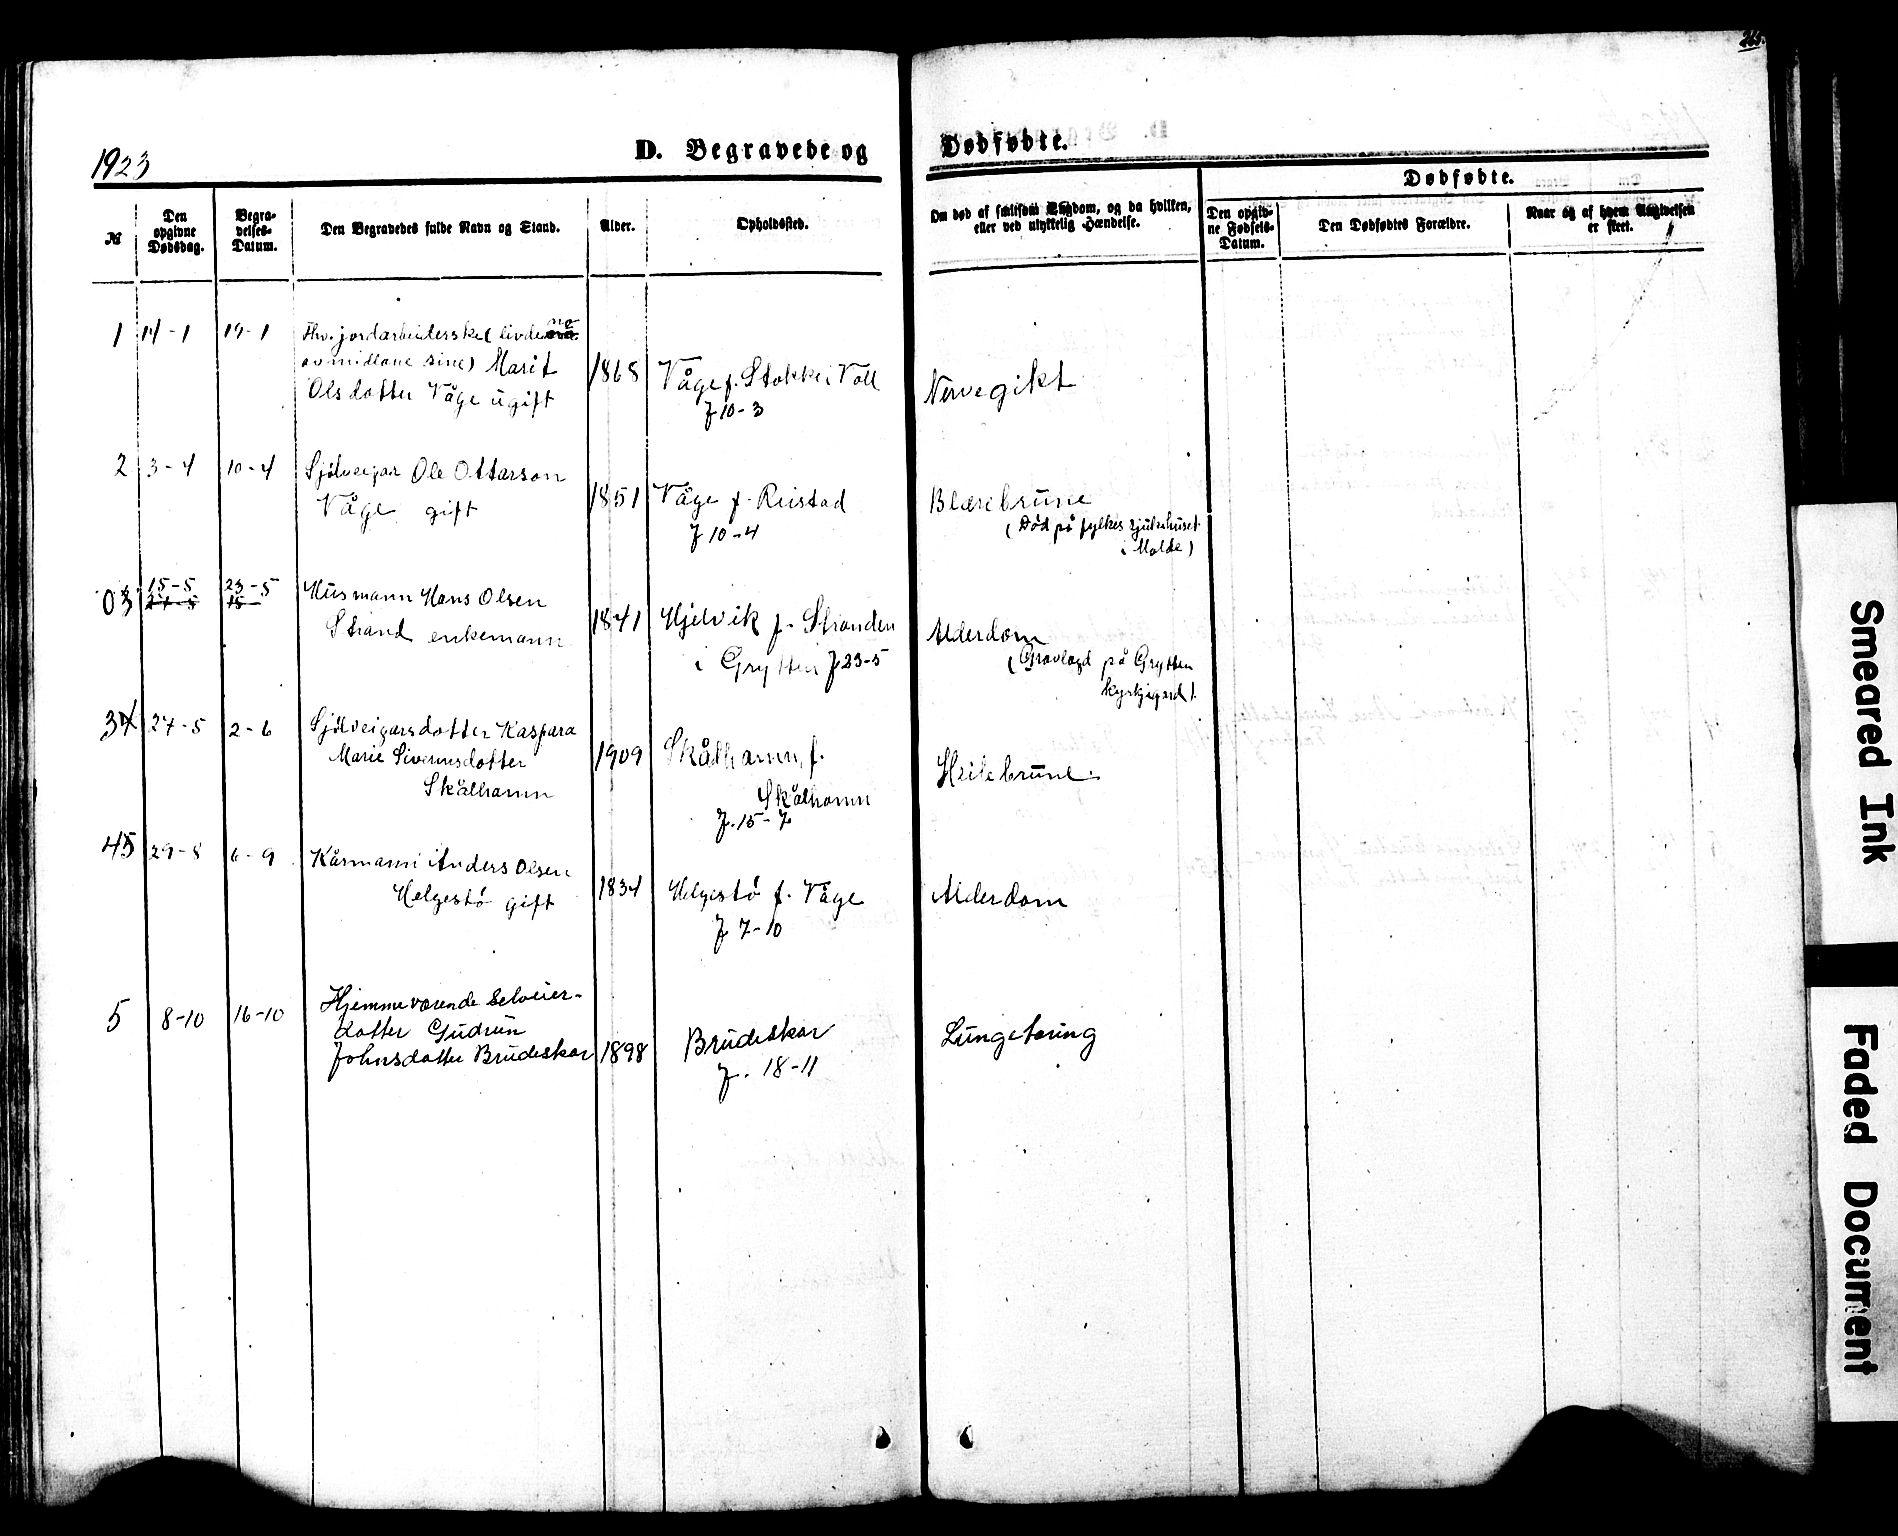 1923
D. Begravede og Dødfødte.
Dødfødte.
№
Den opgivne Dødsdag.
Begravelses-Datum.
Den Begravedes fulde Navn og Stand.
Alder.
Opholdssted.
Om død af smitsom Sygdom, og da hvilken,
eller ved ulykkelig Hændelse.
Den opgivne Fødsels-Datum.
Den Dødfødtes Forældre.
Naar og af hvem Angivelsen
er skeet.
1 14-1 19-1
jordarbeiderske (livde no
av midlane sine) Marit
Olsdotter Våge ugift
1868
Våge f. Stokke i Voll
F 10-3
Nervegikt
2 3-4 10-4
Sjølveigar Ole Ottarson
Våge gift
1851
Våge f. Reistad
F 10-4
Blærebrune
(Død på fylkes sjukehuset
i Molde)
03 15-5 23-5
Husmann Hans Olsen
Strand enkemann
1841
Hjelvik f. Stranden
i Grytten F 23-5
Alderdom
(Gravlagd på Grytten
kyrkjegard).
34 27-5 2-6
Sjølveigarsdotter Kaspara
Marie Sivertsdotter
Skålhamn
1909
Skålhamn, f.
Skålhamn
F. 15-7
Heilebrune
45 29-8 6-9
Kårmann Anders Olsen
Helgestø gift
1834
Helgestø f. Våge
F 7-10
Alderdom
5 8-10 16-10
Hjemmeværende selveier-
dotter Gudrun
Johnsdotter Brudeskar
1898
Brudeskar
F. 18-11
Lungetæring
Smeared Ink
Faded Document